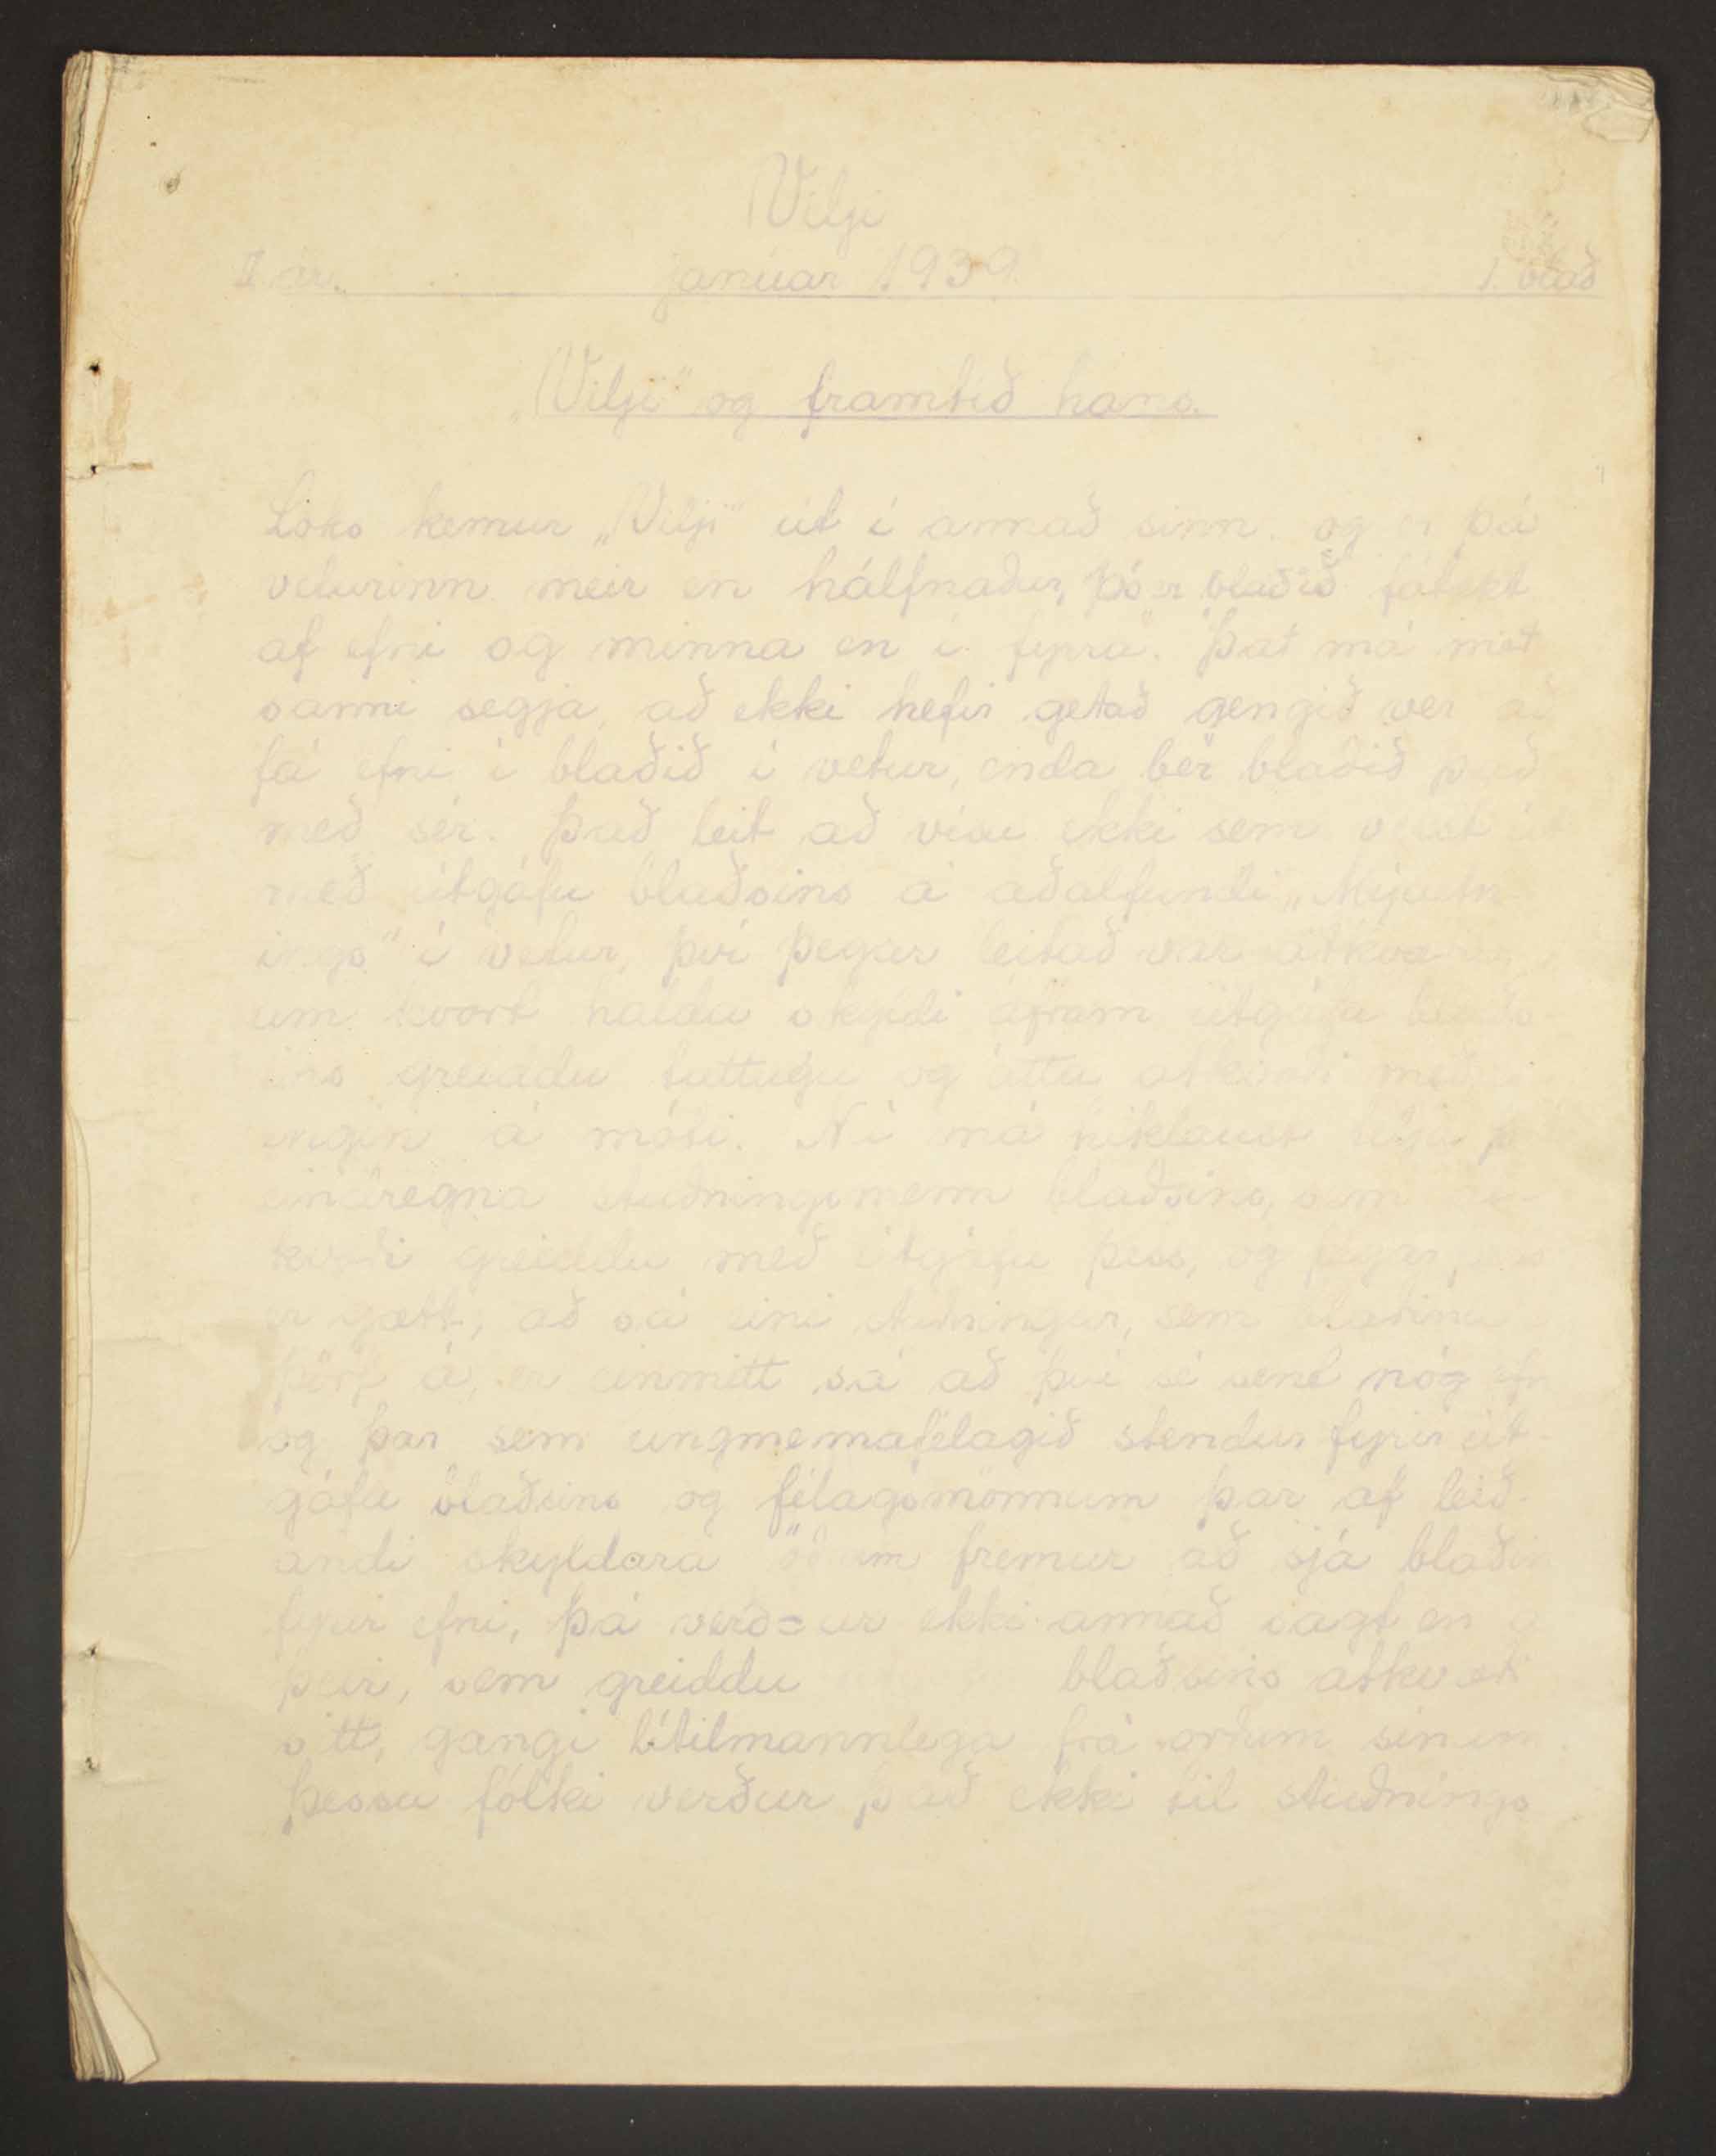 Vilji
II ár. janúar 1939. 1. blað
„Vilji" og framtíð hans.
Loks kemur „Vilji" út í annað sinn. og er þá
veturinn meir en hálfnaður, þó er blaðið fátækt
af efni og minna en í fyrra. Það má með
sanni segja, að ekki hefir getað gengið ver að
fá efni í blaðið í vetur, enda ber blaðið það
með sér. Það leit að vísu ekki sem verst út
með útgáfu blaðsins á aðalfundi
í vetur, því þegar leitað var
um hvort halda skyldi áfram útgáfu blaðs-
ins greiddu tuttugu og átta atkvæði með
engin á móti. Nú má hiklaust telja þá
eindregna stuðningsmenn blaðsins, sem at-
kvæði greiddu með útgáfu þess, og þegar þess
er gætt, að sá eini stuðningur, sem blaðinu
þörf á, er einmitt sá að því sé send nóg efn
og þar sem ungmennafélagið stendur fyrir út-
gáfu blaðsins og félagsmönnum þar af leið-
andi skyldara öðrum fremur að sjá blaðin
fyrir efni, þá verð=ur ekki annað sagt en a
þeir, sem greiddu blaðsins atkvæði
sitt, gangi lítilmannlega frá orðum sínum.
Þessu fólki verður það ekki til stuðnings